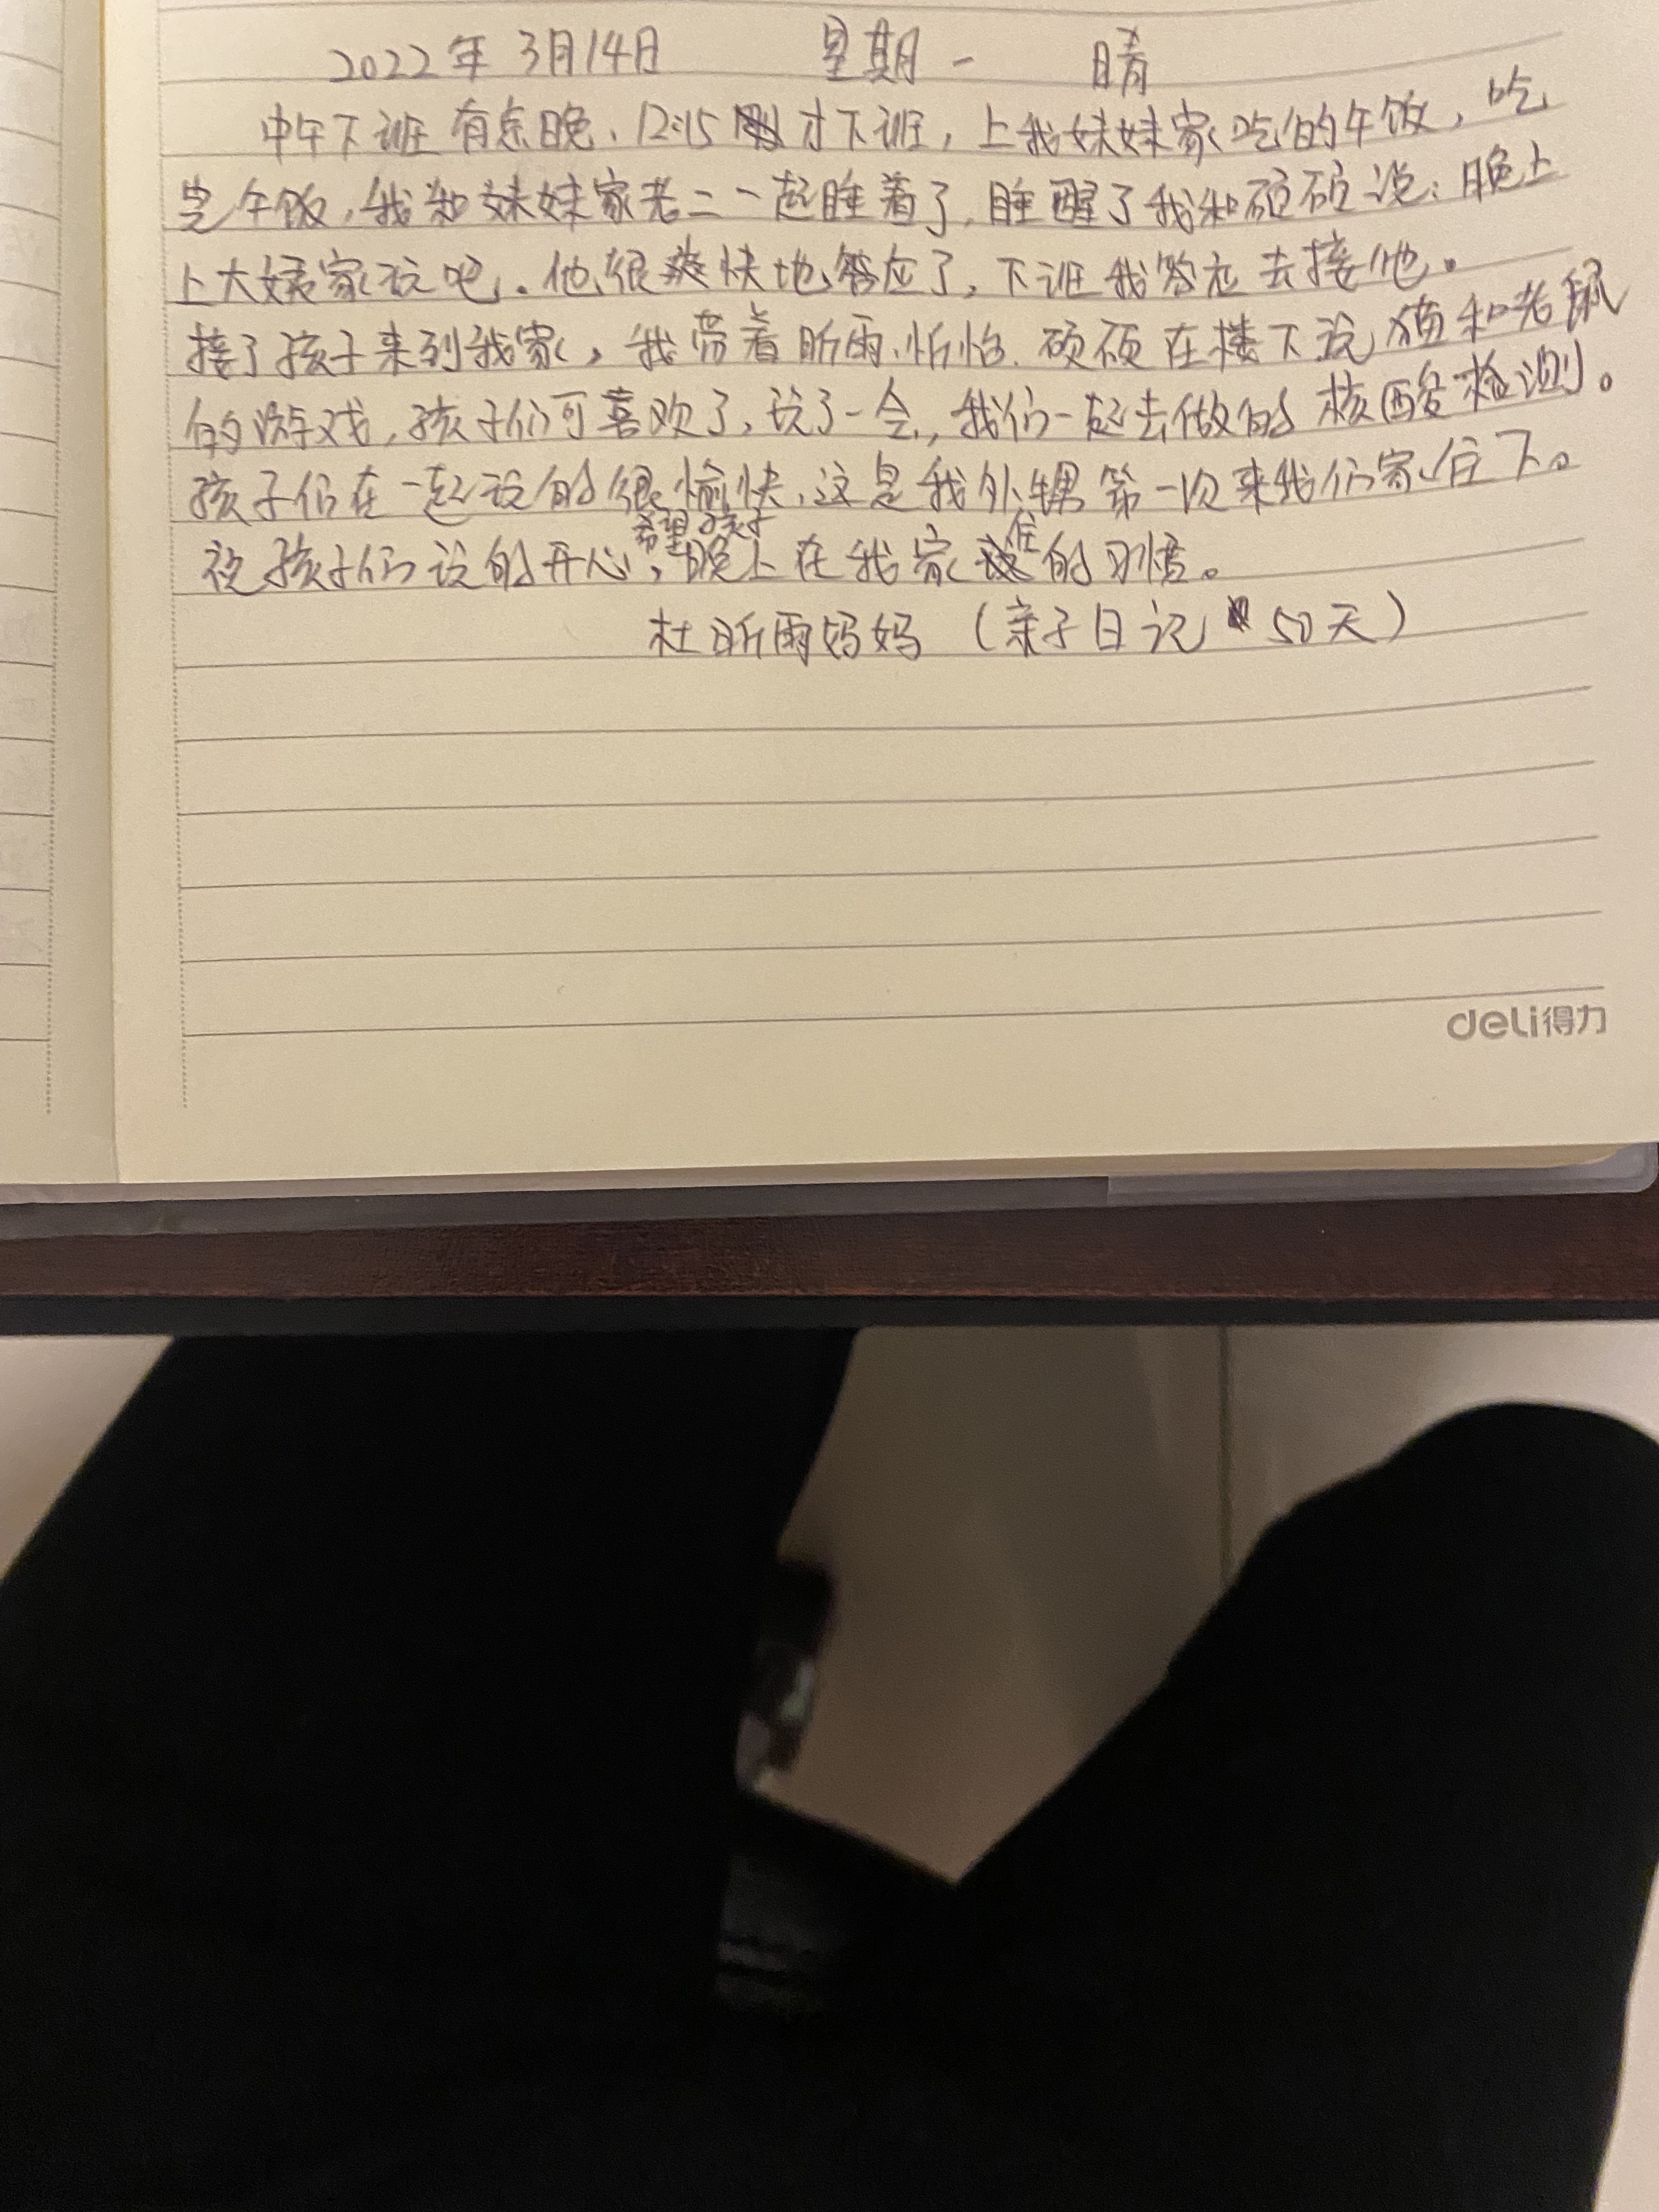 2022年3月14日 星期一 晴
中午下班有点晚、12:15才下班，上我妹妹家吃的午饭，吃
完午饭，我和妹妹家老二一起睡着了，睡醒了我和硕硕说：晚上
上大姨家玩吧。他很爽快地答应了，下班我答应去接他。
接了孩子来到我家，我带着昕雨、忻怡、硕硕在楼下玩猫和老鼠
的游戏，孩子们可喜欢了，玩了一会，我们一起去做的核酸检测。
孩子们在一起玩的很愉快，这是我外甥第一次来我们家住下。
祝孩子们玩的开心，希望孩子晚上在我家住的习惯。
杜昕雨妈妈（亲子日记50天）
deli得力